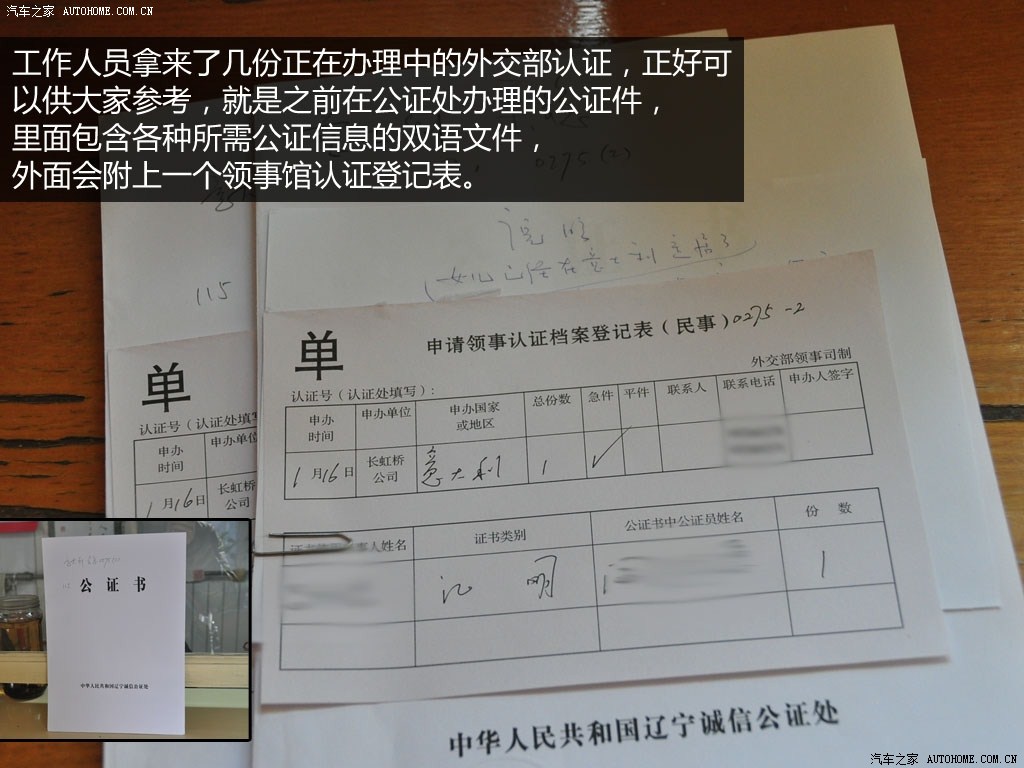 汽车之家 AUTOHOME.COM.CN
工作人员拿来了几份正在办理中的外交部认证，正好可
以供大家参考，就是之前在公证处办理的公证件，
里面包含各种所需公证信息的双语文件，
外面会附上一个领事馆认证登记表。
0275(2)
115
单
申请领事认证档案登记表（民事）0275-2
外交部领事司制
认证号（认证处填写）：
申办时间 申办单位 申办国家或地区 总份数 急件 平件 联系人 联系电话 申办人签字
1月16日 长虹桥公司 意大利 1 √
事人姓名 证书类别 公证书中公证员姓名 份 数
证明 1
单
认证号（认证处填写
申办时间 申办单位
1月16日 长虹桥公司
公 证 书
中华人民共和国辽宁诚信公证处
中华人民共和国辽宁诚信公证处
汽车之家 AUTOHOME.COM.CN